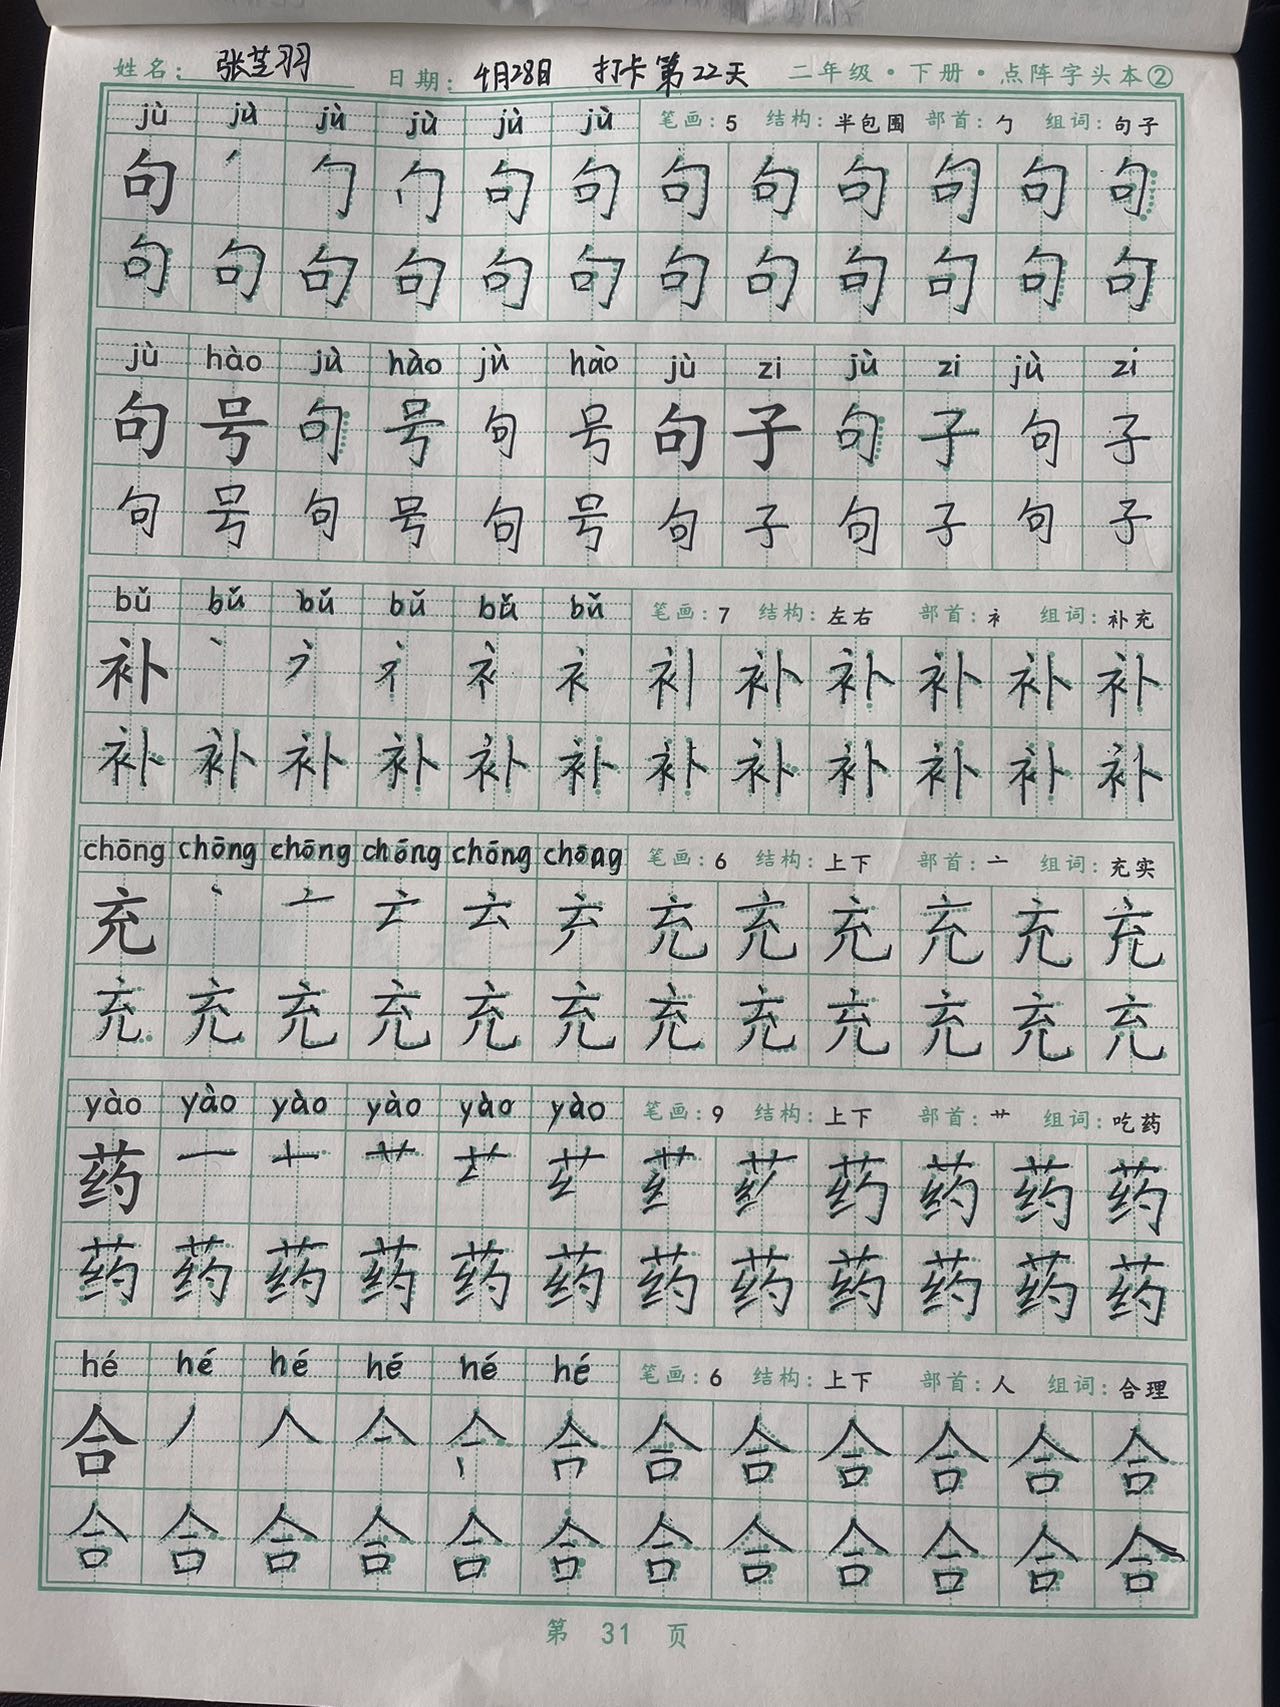 姓名：张芝羽 日期：4月28日 打卡第22天 二年级·下册·点阵字头本②
jù jù jù jù jù jù 笔画：5 结构：半包围 部首：勹 组词：句子
句 ㇒ 勹 勹 句 句 句 句 句 句 句 句
句 句 句 句 句 句 句 句 句 句 句 句
jù hào jù hào jù hào jù zi jù zi jù zi
句 号 句 号 句 号 句 子 句 子 句 子
句 号 句 号 句 号 句 子 句 子 句 子
bǔ bǔ bǔ bǔ bǔ bǔ 笔画：7 结构：左右 部首：衤 组词：补充
补 丶 衤 补 补 补 补 补
补 补 补 补 补 补 补 补 补 补 补 补
chōng chōng chōng chōng chōng chōng 笔画：6 结构：上下 部首：亠 组词：充实
充 丶 亠 云 充 充 充 充 充 充
充 充 充 充 充 充 充 充 充 充 充 充
yào yào yào yào yào yào 笔画：9 结构：上下 部首：艹 组词：吃药
药 一 十 艹 药 药 药 药
药 药 药 药 药 药 药 药 药 药 药 药
hé hé hé hé hé hé 笔画：6 结构：上下 部首：人 组词：合理
合 ㇒ 人 亼 合 合 合 合 合 合
合 合 合 合 合 合 合 合 合 合 合 合
第 31 页